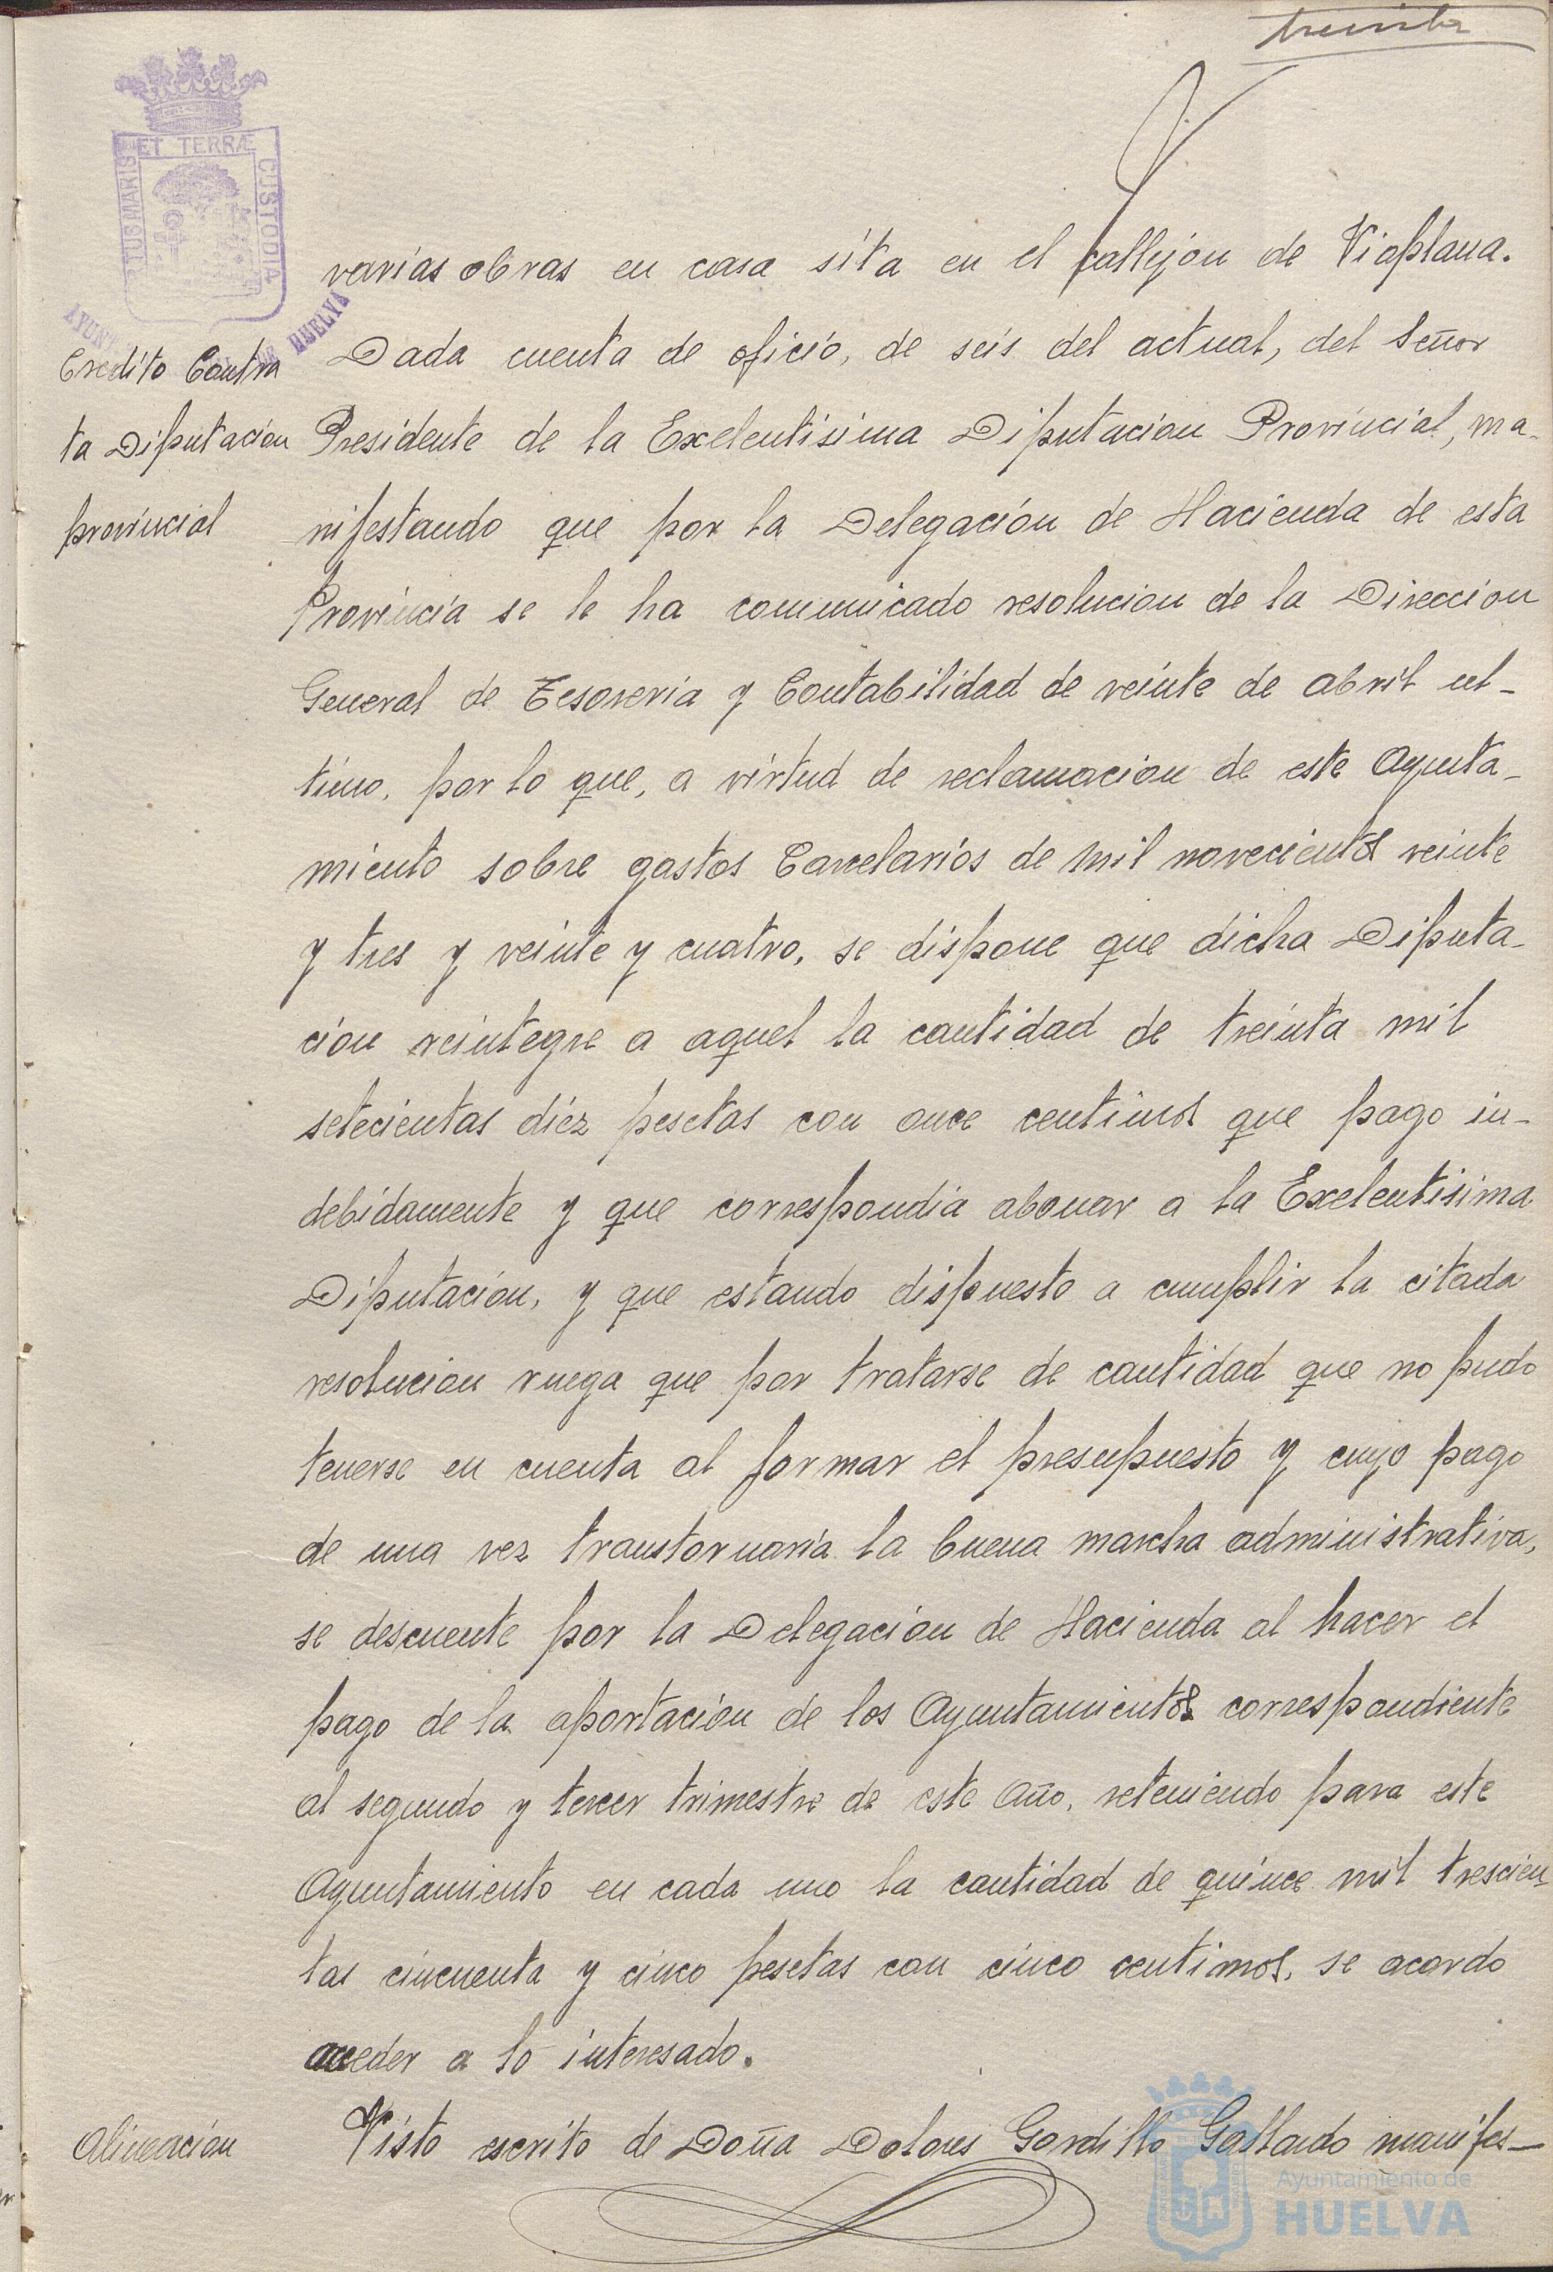 treinta
ET TERRÆ
TUS MARIS
CUSTODIA
varias obras en casa sita en el callejon de Viaplana.
Credito Contra
la Diputacion
provincial
Dada cuenta de oficio, de seis del actual, del Señor
Presidente de la Exelentisima Diputacion Provincial, ma-
nifestando que por la Delegación de Hacienda de esta
Provincia se le ha comunicado resolucion de la Direccion
General de Tesoreria y Contabilidad de veinte de abril ul-
timo, por lo que, a virtud de reclamacion de este Ayunta-
miento sobre gastos Carcelarios de mil novecientos veinte
y tres y veinte y cuatro, se dispone que dicha Diputa-
ción reintegre a aquel la cantidad de treinta mil
setecientas diez pesetas con once centimos que pago in-
debidamente y que correspondia abonar a la Exelentisima
Diputación, y que estando dispuesto a cumplir la citada
resolucion ruega que por tratarse de cantidad que no pudo
tenerse en cuenta al formar el presupuesto y cuyo pago
de una vez transtornaria la buena marcha administrativa,
se descuente por la Delegación de Hacienda al hacer el
pago de la aportación de los Ayuntamientos correspondiente
al segundo y tercer trimestre de este Año, reteniendo para este
Ayuntamiento en cada uno la cantidad de quince mil trescien-
tas cincuenta y cinco pesetas con cinco centimos, se acordo
acceder a lo interesado.
Alineación
Visto escrito de Doña Dolores Gordillo Gallardo manifes-
Ayuntamiento de
HUELVA